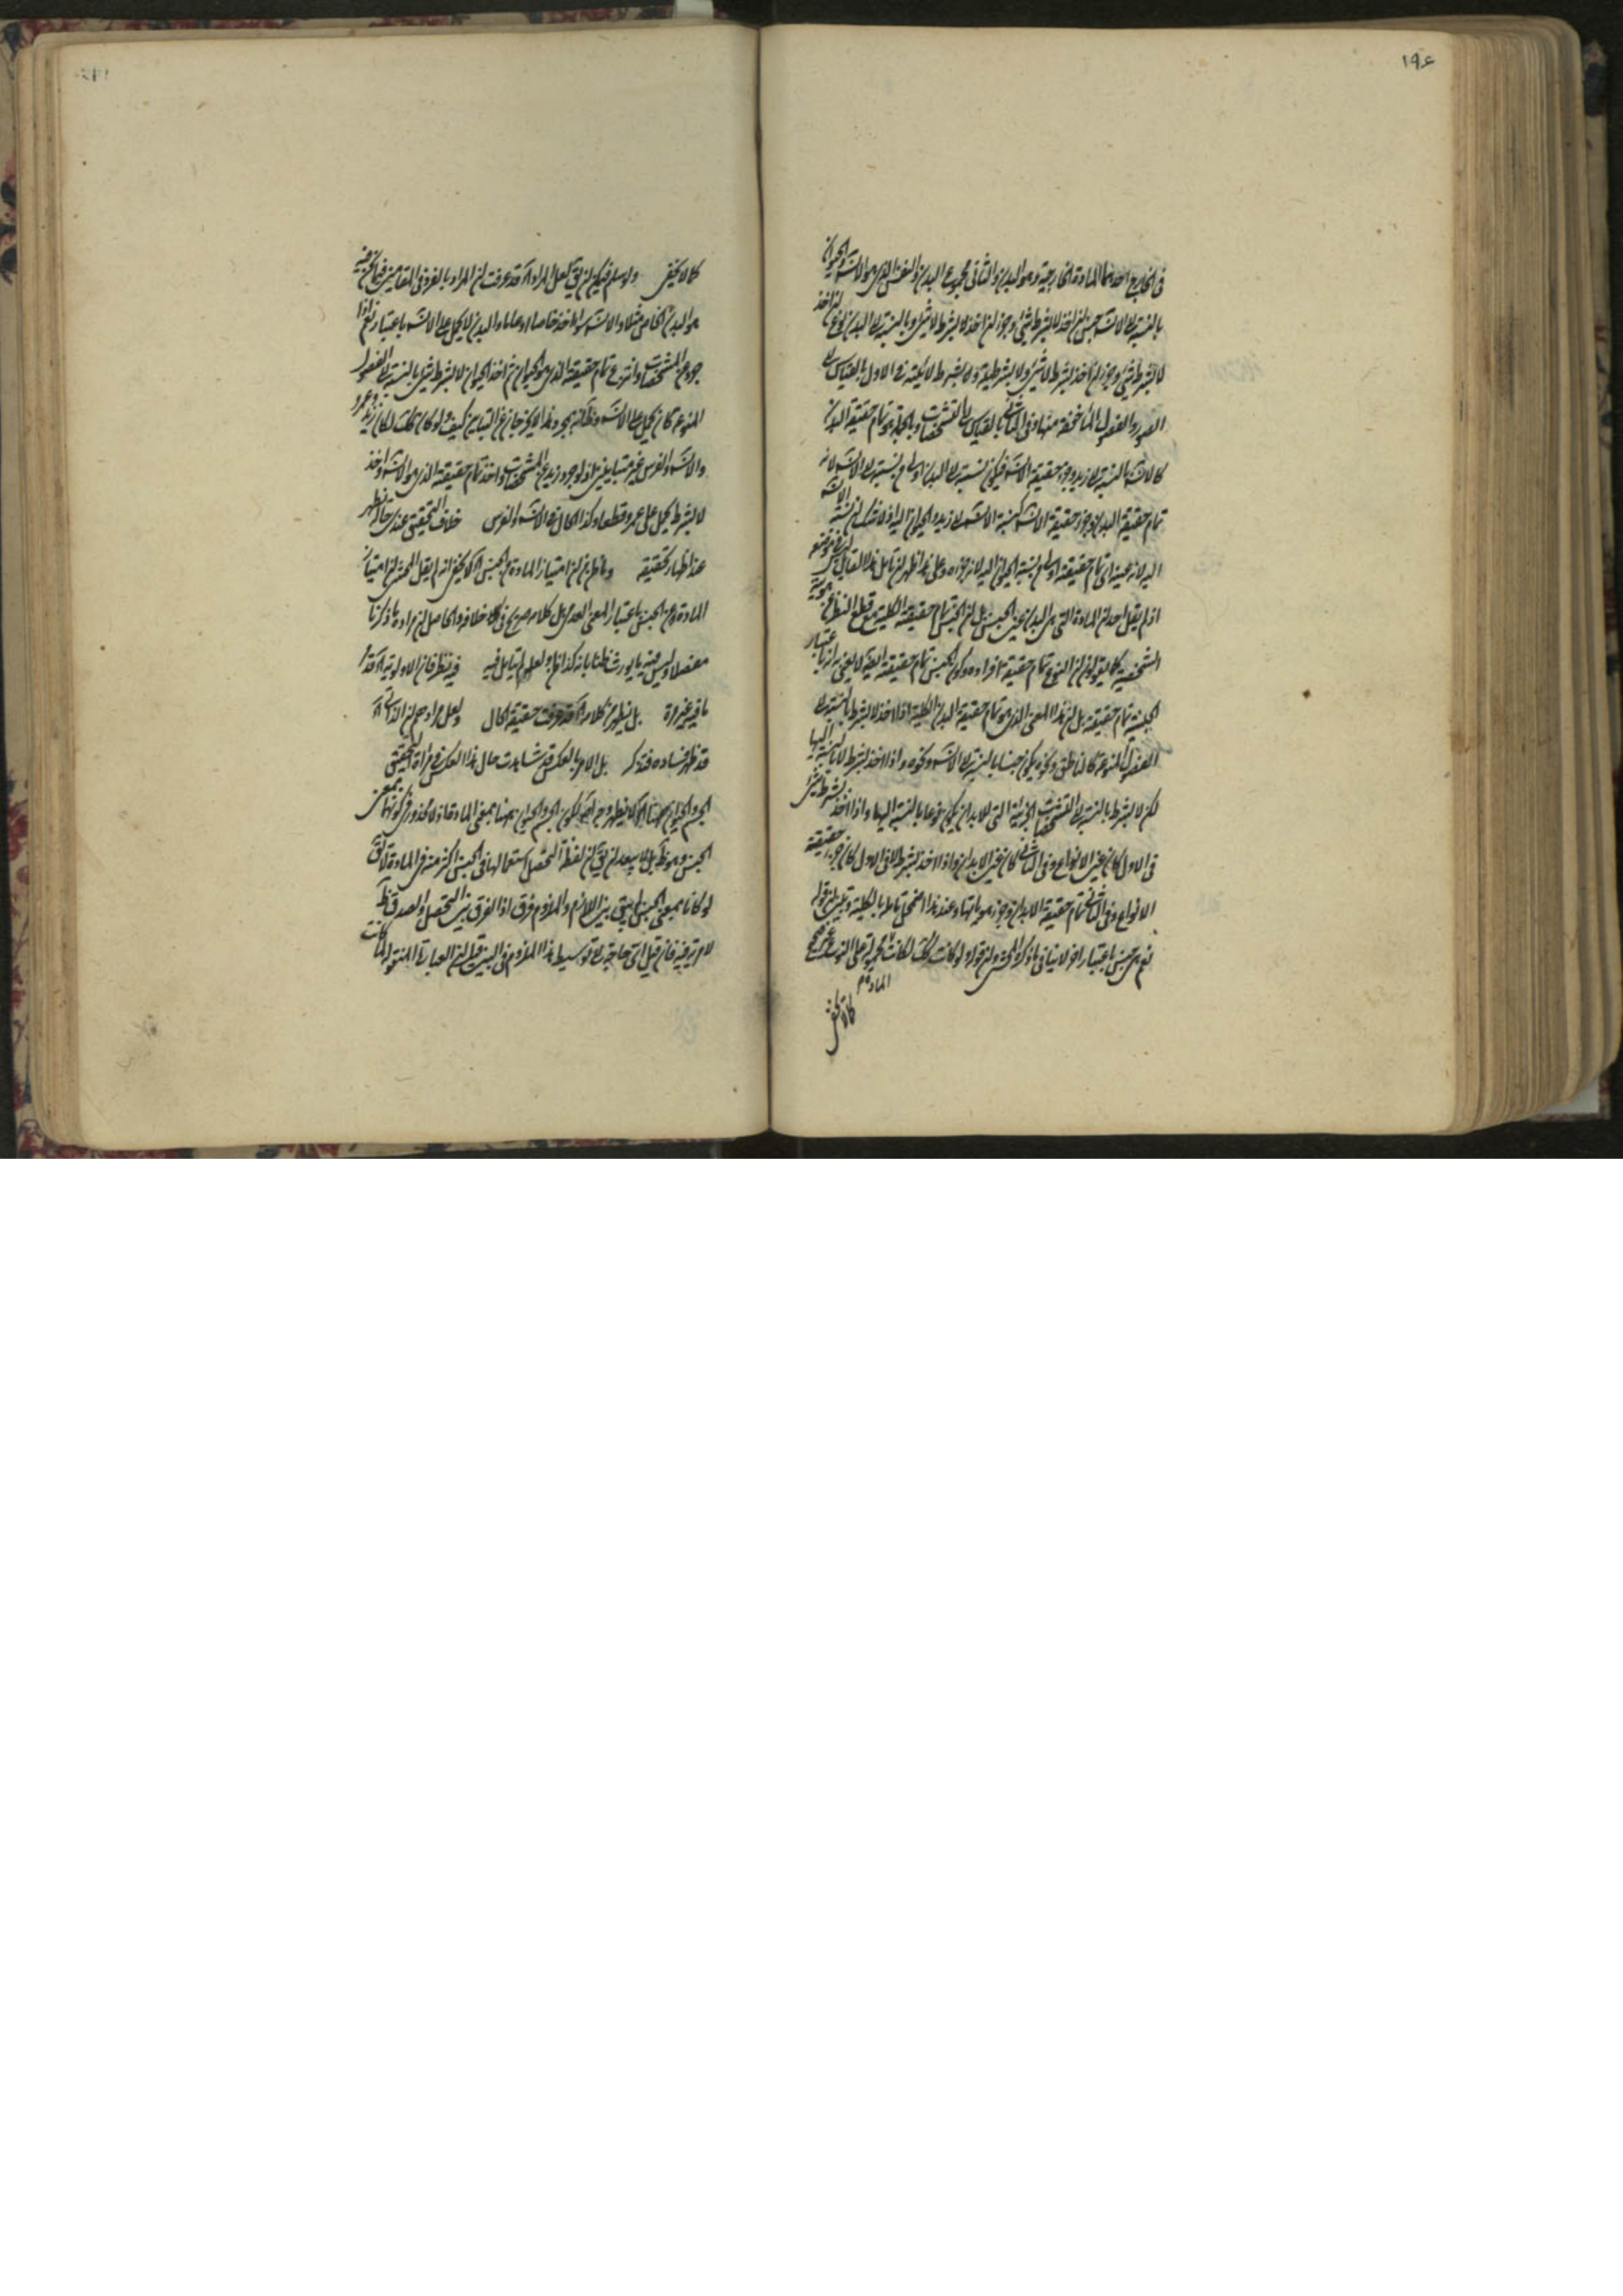 ١٩٤
في الخارج احدهما المادة الخارجية وهو البدن والثاني مجموع البدن والنفس الذي هو الانسان والحيوان
بالنسبة الى الانسان جنس ان اخذ لا بشرط شئ وجزء ان اخذ بشرط لا شئ وبالنسبة الى البدن نوع ان اخذ
لا بشرط شئ وجزء ان اخذ بشرط لا شئ ولا بشرطية و بشرط لائية في الاول بالقياس الى
الصور والفصول المأخوذة منها وفي الثاني بالقياس الى التشخصات وبالجملة هو تمام حقيقة البدن
كالانسان بالنسبة الى زيد وجزء حقيقة الانسان فيكون نسبته الى البدن اولى من نسبته الى الانسان لانه
تمام حقيقة البدن وجزء حقيقة الانسان كنسبة الانسان الى زيد والحيوان اليه ولا شك ان نسبة الانسان
اليه لانه عينه اي تمام حقيقته اولى من نسبة الحيوان اليه لانه جزؤه وعلى هذا ظهر ان تأمل هذا القائل ليس في موضعه
اذ لم يقل احد ان المادة التي هي البدن عين الجنس بل ان الجنس تمام حقيقته الكلية مع قطع النظر عن هويته
الشخصية كما يقولون ان النوع تمام حقيقة افراده وكون الجنس تمام حقيقته ايضا لا يعني به انه باعتبار
الجنسية تمام حقيقته بل ان هذا المعنى الذي هو تمام حقيقة البدن الكلية اذا اخذ لا بشرط بالنسبة الى
الفصول المنوعة كالناطق ونحوه يكون جنسا بالنسبة الى الانسان ونحوه واذا اخذ بشرط لا بالنسبة اليها
لكن لا بشرط بالنسبة الى التشخصات الجزئية التي للابدان يكون نوعا بالنسبة اليها واذا اخذ بشرط شئ
في الاول كان عين الانواع وفي الثاني كان عين الابدان واذا اخذ بشرط لا في الاول كان جزء حقيقة
الانواع وفي الثاني تمام حقيقة الابدان وجزء هوياتها وعند هذا اضمحل تأمله بالكلية وتبين ان قوله
نعم هي جنس باعتبار اخر لا ينافي ما ذكره المحشي وان قوله لو كانت كذلك لكانت محمولة على النوع غير صحيح
المادة م
كما لا يخفى
كما لا يخفى ولو سلم فيمكن ان يق لعل المراد اه قد عرفت ان المراد بالفرق في المقامين فما نحن فيه
هو البدن الخاص مثلا والانسان سواء اخذ خاصا او عاما والبدن لا يحمل على الانسان باعتبار نعم اذا
جرد عن المشخصات وانتزع تمام حقيقته الذي هو الحيوان ثم اخذ الحيوان لا بشرط شئ بالنسبة الى الفصول
المنوعة كان يحمل على الانسان وظاهر انه بمجرد هذا لا يخرجان عن التباين كيف ولو كان كذلك لكان زيد وعمرو
والانسان والفرس غير متباينين اذ لو جرد زيد عن المشخصات واخذ تمام حقيقته الذي هو الانسان واخذ
لا بشرط يحمل على عمرو قطعا وكذا الحال في الانسان والفرس خلاف التحقيق عندي حتى اظهر
عند اظهار تحقيقه وما ظن من ان امتياز المادة عن الجنس اه لا يخفى انه لم يقل المحشي ان امتياز
المادة عن الجنس باعتبار المعنى العدمي بل كلامه صريح في خلافه والحاصل ان مراده ما ذكرنا
مفصلا وليس فيه ما يورث ظنا بانه كذا فلعله لم يتأمل فيه فيه نظر فان الاولوية اه قد
ما فيه غير مرة بل يظهر من كلامه اه قد عرفت حقيقة الحال ولعل مرادهم ان الذاتي اه
قد ظهر فساده فتذكر بل الامر بالعكس قد شاهدت حال هذا العكس في مرآة التحقيق
الجسم والحيوان ههنا اه لا يظهر وجه لكون الجسم والحيوان ههنا بمعنى المادة اذ لا محذور في كونهما بمعنى
الجنس وهو ظاهر بل لا يبعد ان يق ان لفظة التحصل استعمالها في الجنس اكثر منه في المادة لا يق
لو كانا بمعنى الجنس لم يبق بين اللازم والملزوم فرق اذ الفرق بين التحصل والصدق ظاهر
لا مرية فيه فان قيل اي حاجة الى توسيط هذا الملزوم في البين قيل ان العبارة المنقولة لما كانت